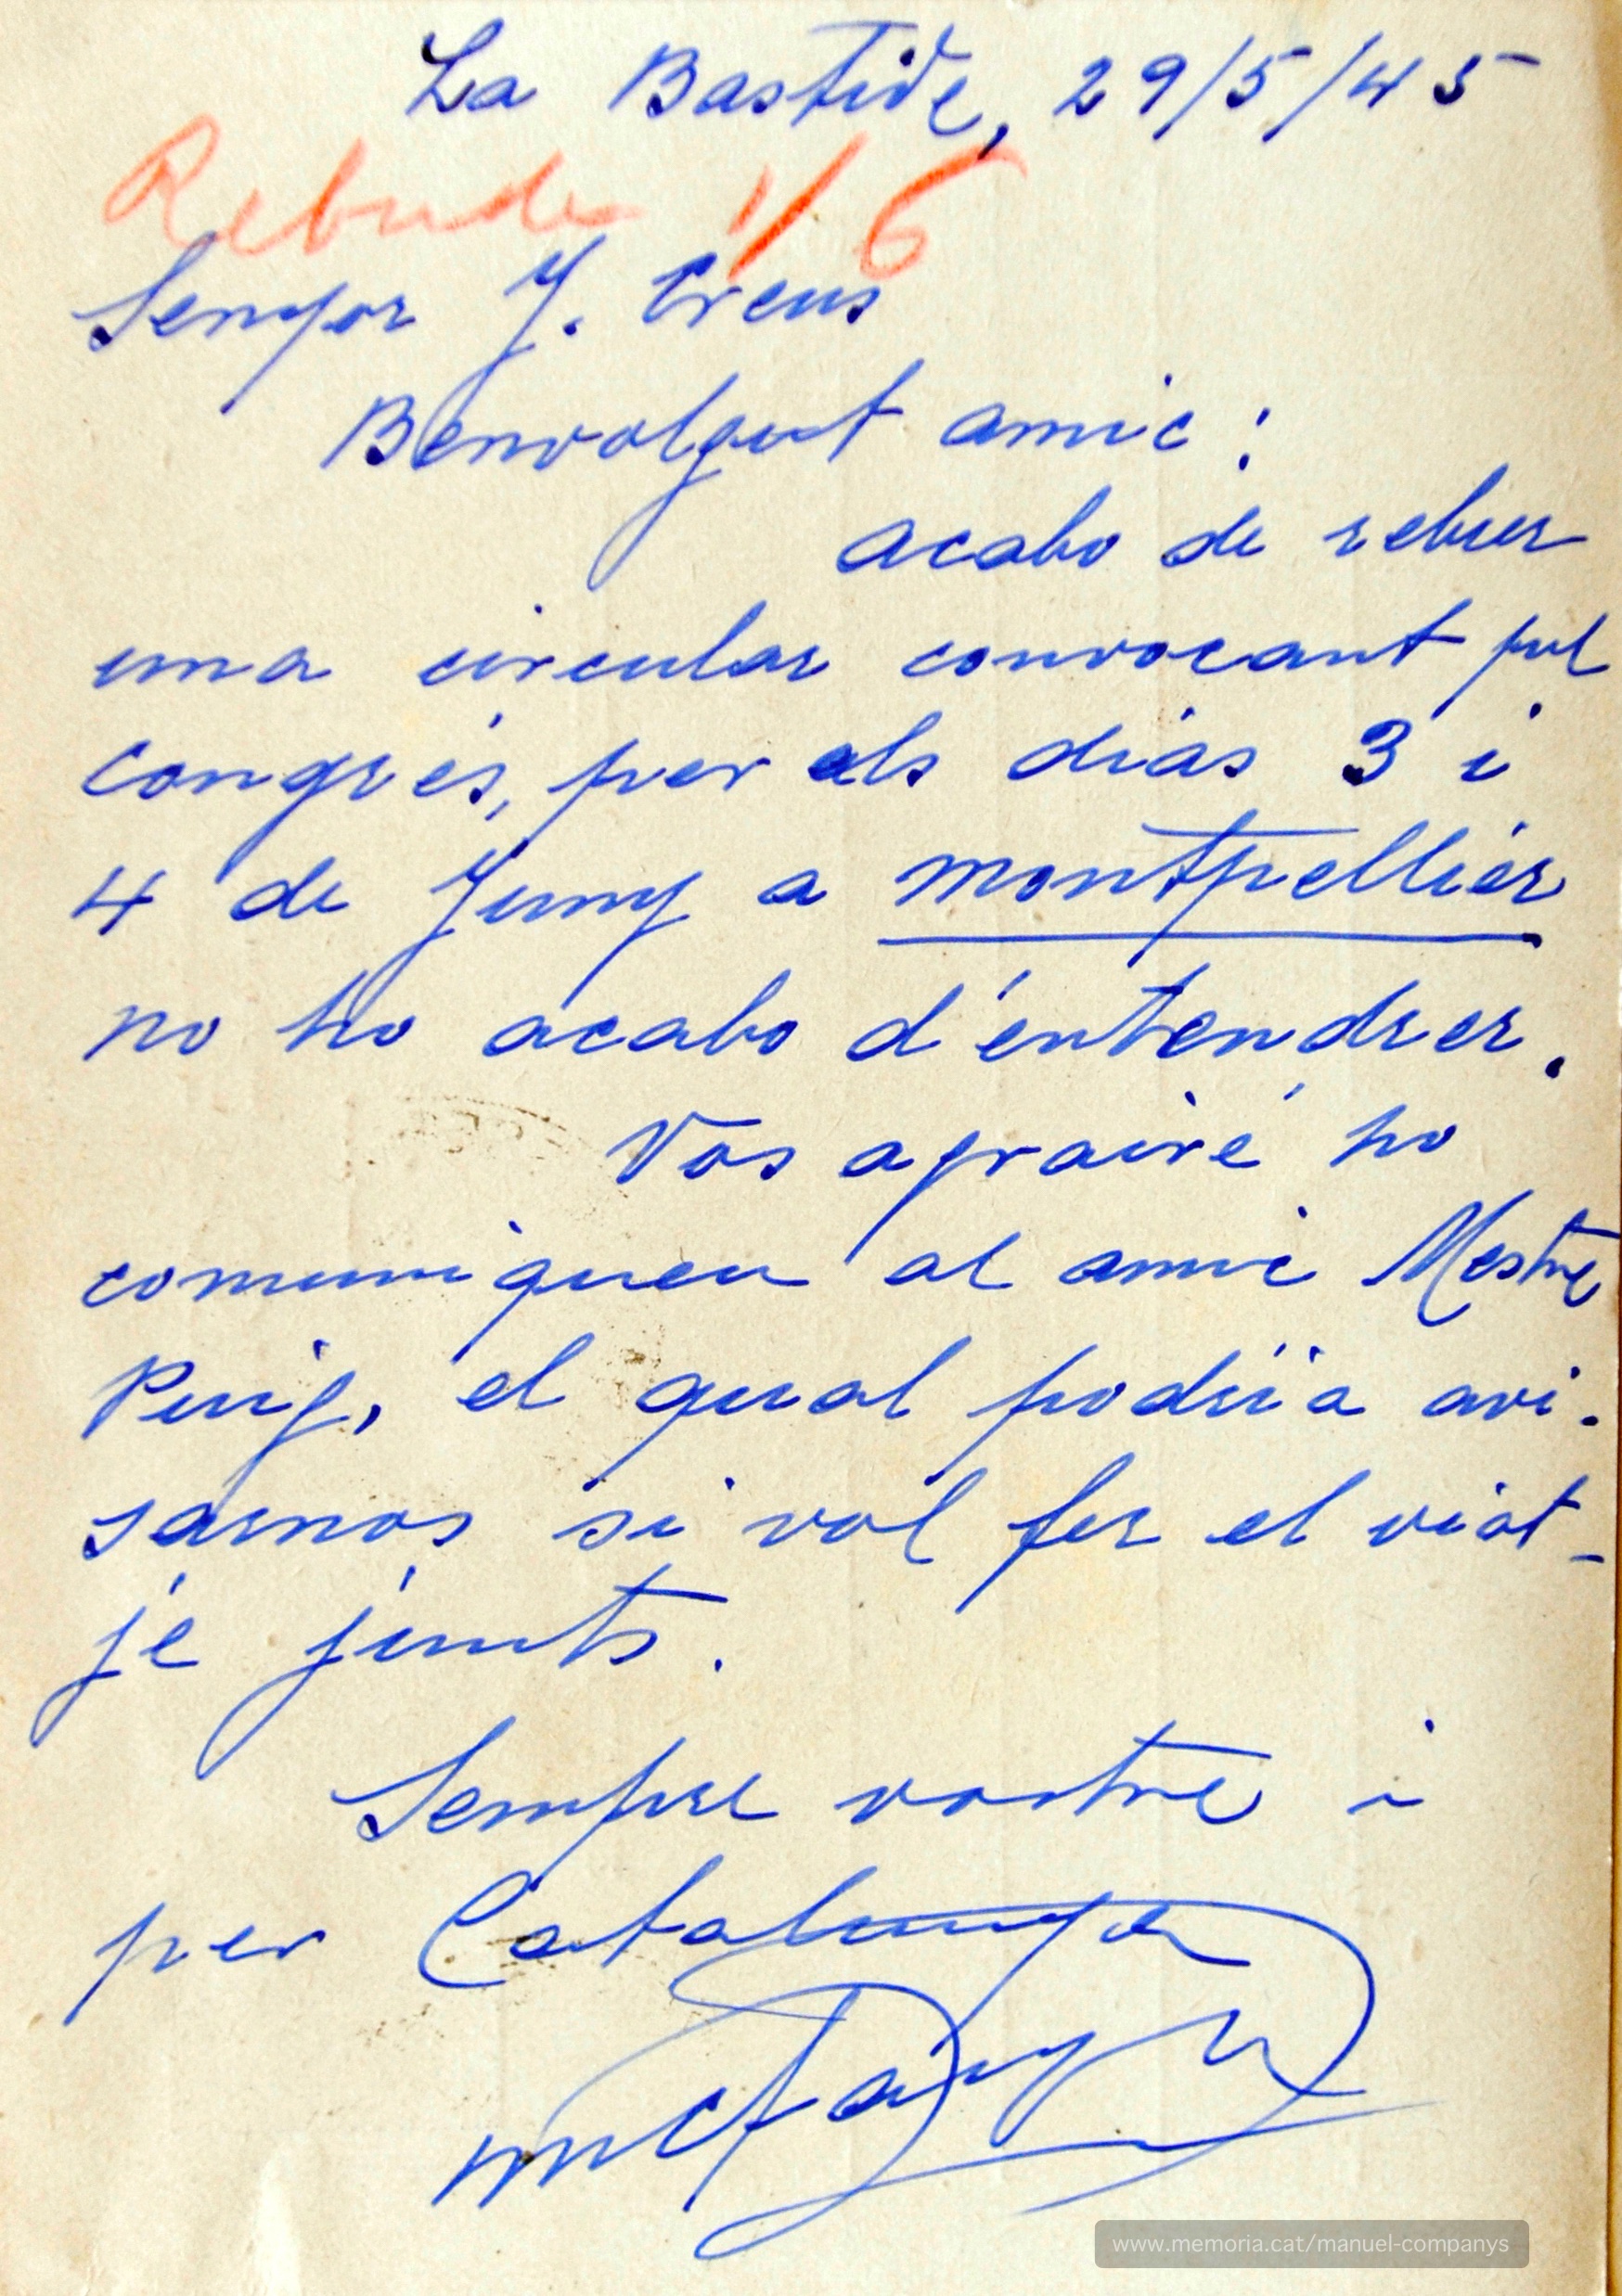 La Bastide, 29/5/45
Rebuda 1/6
Senyor J. Creus
Benvolgut amic:
acabo de rebrer
una circular convocant pel
Congrés, per als días 3 i
4 de Juny a Montpellier
no ho acabo d'entendrer.
Vos agrairé ho
comuniqueu al amic Mestre
Puig, el qual podría avi-
sarnos si vol fer el viat-
je junts.
Sempre vostre i
per Catalunya
www.memoria.cat/manuel-companys